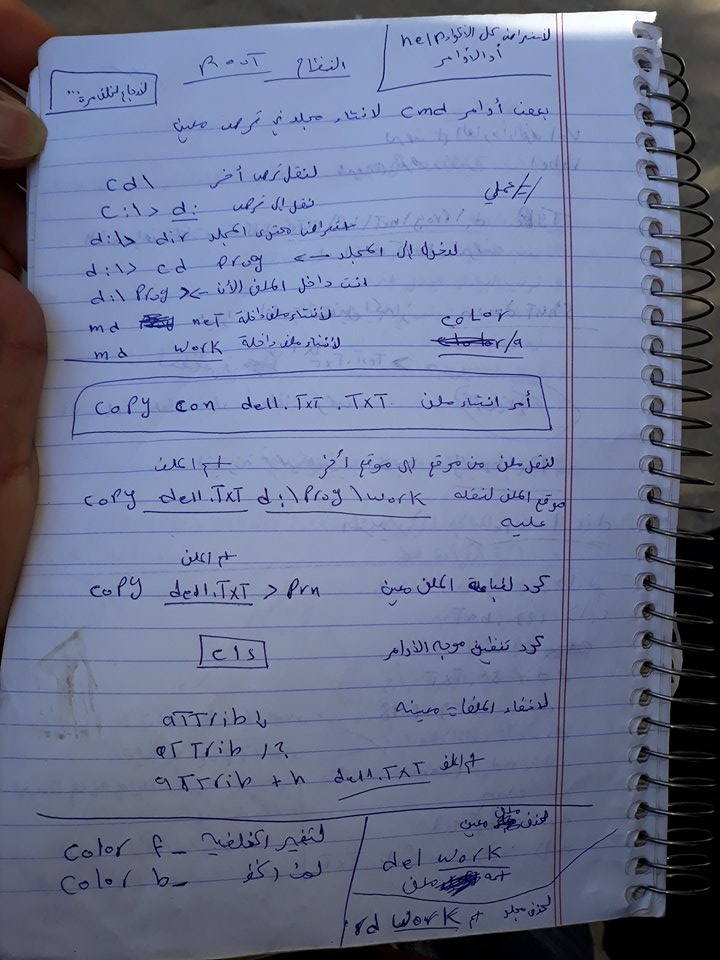 لاستعراض كل الأكواد help
أو الأوامر
النفتاح root
للارجاع للخلف مرة ...
بعض أوامر cmd لانشاء مجلد في قرص معين
cd\ لنقل قرص أخر
C:\> d: نقل إلى قرص
عملي
d:\> dir استعراض محتوى المجلد
d:\> cd Prog <-- لدخول إلى المجلد
d:\Prog> <-- انت داخل الملف الأن
md net لأنشاء ملف داخلة
md work لأنشاء ملف داخلة
color
/a
copy con dell.TxT.TxT أمر انشاء ملف
لنقل ملف من موقع إلى موقع أخر اسم الملف
copy dell.TxT d:\Prog\work موقع الملف لنقله
عليه
اسم الملف
copy dell.TxT > Prn كود لطباعة الملف معين
cls كود تنظيف موجه الأوامر
لاخفاء الملفات معينه
aTTrib \
aTTrib /?
aTTrib +h dell.TxT اسم الملف
color f_ لتغير الخلفيه
color b_
لحذف ملف معين
del work
اسم ملف
rd work لحذف مجلد اسم